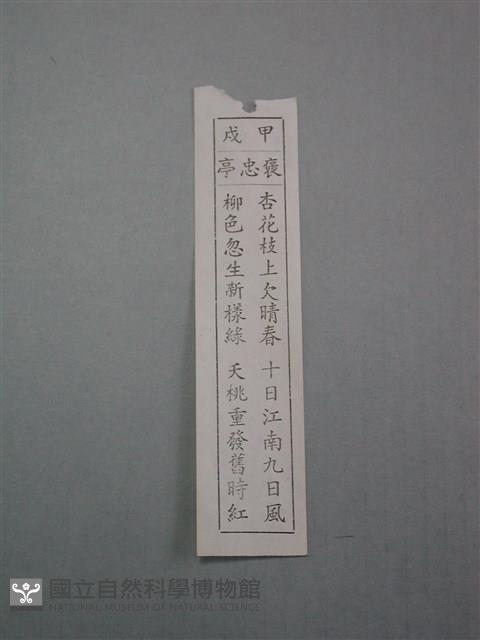 甲戍
褒忠亭
杏花枝上欠晴春 十日江南九日風
柳色忽生新樣綠 天桃重發舊時紅
國立自然科學博物館
NATIONAL MUSEUM OF NATURAL SCIENCE